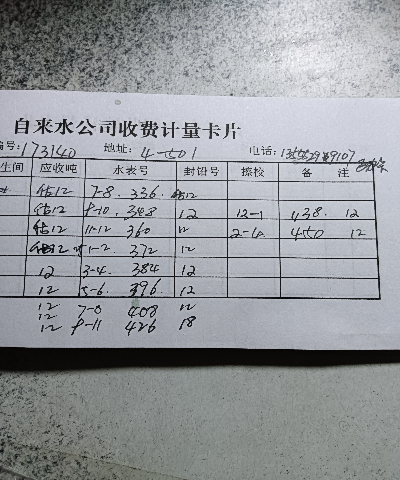 自来水公司收费计量卡片
编号:173140 地址: 4-501 电话:
生间 应收吨 水表号 封铅号 擦校 备 注
估12 7-8. 336. 估12
估12 9-10. 348 12 12-1 438. 12
估12 11-12 360 12 2-4 450 12
估12 1-2. 372 12
12 3-4. 384 12
12 5-6. 396. 12
12 7-8 408 12
12 9-11 426 18